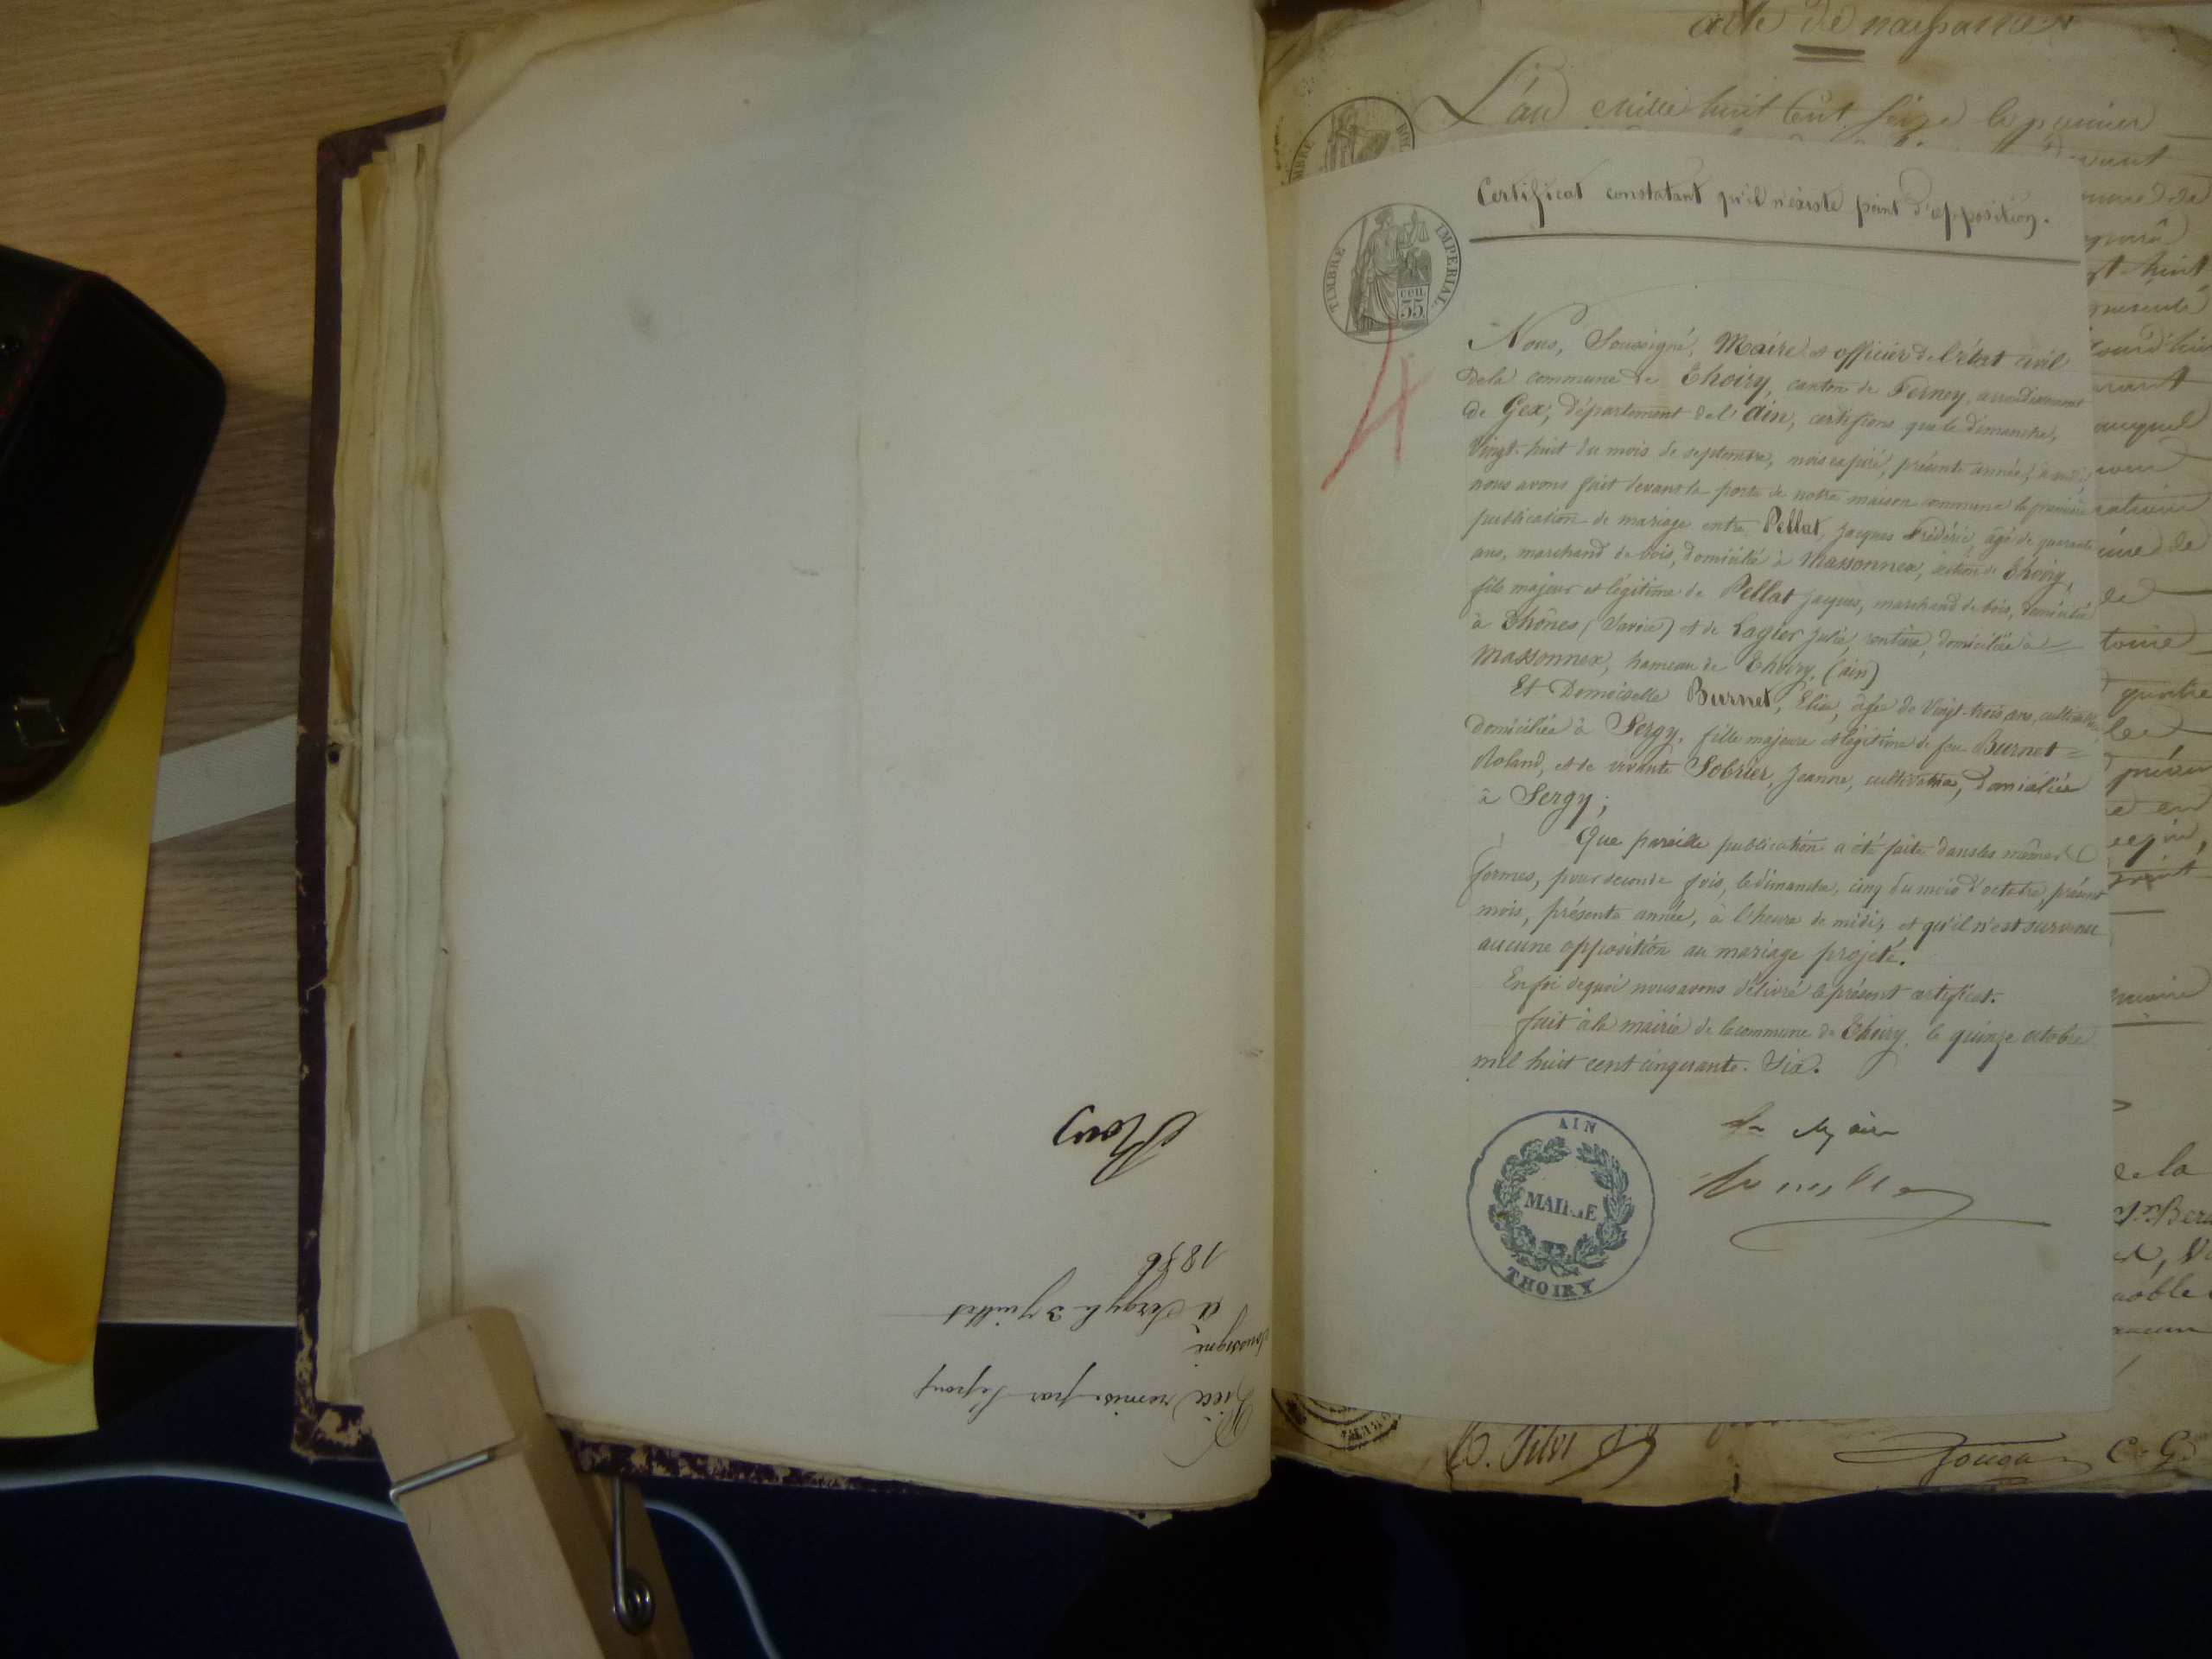 Pièce remise par l'époux
soussigné
à Sergy le 3 Juillet
1856
acte de naissance
L'an mille huit Cent seize le premier
Certificat constatant qu'il n'éxiste point d'opposition.
TIMBRE IMPERIAL
cen. 35
4
Nous, Soussigné, Maire et officier de l'état civil
de la commune de Thoiry, canton de Ferney, arrondissement
de Gex, département de l'Ain, certifions que le dimanche,
Vingt-huit du mois de septembre, mois expiré, présente année, à midi,
nous avons fait devant la porte de notre maison commune la première
publication de mariage entre Pellat, Jacques Frédéric, âgé de quarante
ans, marchand de bois, domicilié à Massonnex, section de Thoiry,
fils majeur et légitime de Pellat Jacques, marchand de bois, domicilié
à Thônes (Savoie) et de Lagier Julie, rentière, domiciliée à =
Massonnex, hameau de Thoiry, (ain)
Et Demoiselle Burnet, Elise, âgée de Vingt-trois ans, cultivatrice,
domiciliée à Sergy, fille majeure et légitime de feu Burnet =
Roland, et de vivante Sobrier, Jeanne, cultivatrice, domiciliée
à Sergy;
Que pareille publication a été faite dans les mêmes
formes, pour seconde fois, le dimanche, cinq du mois d'octobre, présent
mois, présente année, à l'heure de midi, et qu'il n'est survenu
aucune opposition au mariage projeté.
En foi de quoi nous avons délivré le présent certificat.
fait à la mairie de la commune de Thoiry, le quinze octobre
mil huit cent cinquante-Six.
Le Maire
AIN
MAIRIE
THOIRY